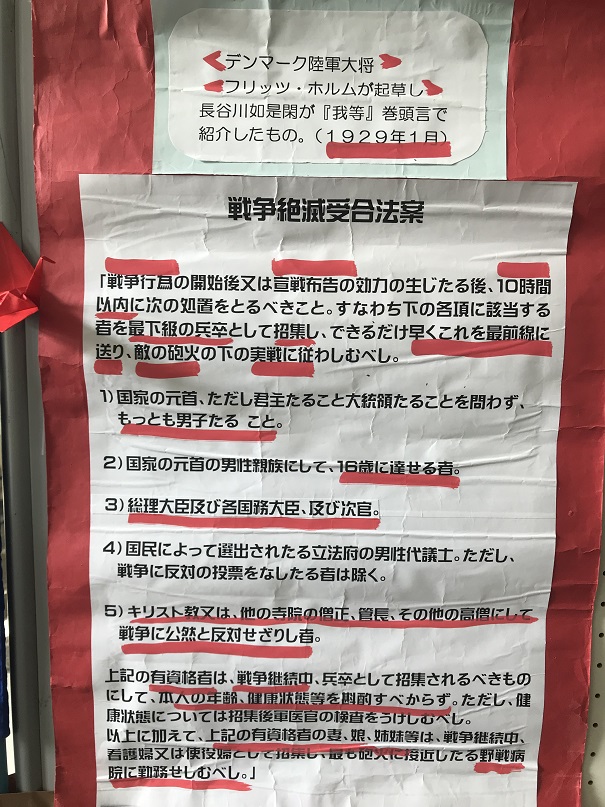 デンマーク陸軍大将
フリッツ・ホルムが起草し
長谷川如是閑が『我等』巻頭言で
紹介したもの。(1929年1月)
戦争絶滅受合法案
「戦争行為の開始後又は宣戦布告の効力の生じたる後、10時間
以内に次の処置をとるべきこと。すなわち下の各項に該当する
者を最下級の兵卒として招集し、できるだけ早くこれを最前線に
送り、敵の砲火の下の実戦に従わしむべし。
1)国家の元首、ただし君主たること大統領たることを問わず、
もっとも男子たる こと。
2)国家の元首の男性親族にして、16歳に達せる者。
3)総理大臣及び各国務大臣、及び次官。
4)国民によって選出されたる立法府の男性代議士。ただし、
戦争に反対の投票をなしたる者は除く。
5)キリスト教又は、他の寺院の僧正、管長、その他の高僧にして
戦争に公然と反対せざりし者。
上記の有資格者は、戦争継続中、兵卒として招集されるべきもの
にして、本人の年齢、健康状態等を斟酌すべからず。ただし、健
康状態については招集後軍医官の検査をうけしむべし。
以上に加えて、上記の有資格者の妻、娘、姉妹等は、戦争継続中、
看護婦又は使役婦として招集し、最も砲火に接近したる野戦病
院に勤務せしむべし。」